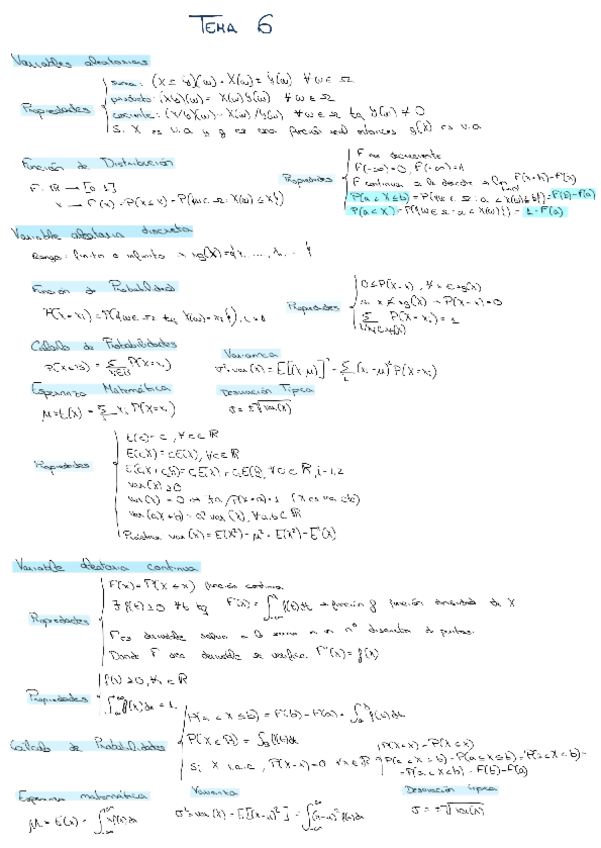 TEMA 6
Variables aleatorias
Propiedades
suma: (X ± Y)(ω) = X(ω) ± Y(ω) ∀ω∈Ω
producto: (XY)(ω) = X(ω)Y(ω) ∀ω∈Ω
cociente: (X/Y)(ω) = X(ω)/Y(ω) ∀ω∈Ω tq Y(ω) ≠ 0
Si X es v.a y g es una función real entonces g(X) es v.a
Función de Distribución
F: ℝ → [0,1]
x → F(x) = P(X≤x) = P({ω∈Ω: X(ω)≤x})
Propiedades
F no decreciente
F(-∞)=0, F(+∞)=1
F continua a la derecha →
P(a<X≤b) = P({ω∈Ω: a<X(ω)≤b}) = F(b)-F(a)
P(a<X) = P({ω∈Ω: a<X(ω)}) = 1-F(a)
Variable aleatoria discreta
Rango: finito o infinito
Función de Probabilidad
P(X=xᵢ) = P({ω∈Ω tq X(ω)=xᵢ}), i≥0
Propiedades
0≤P(X=x), ∀x∈rg(X)
P(X=x)=0
∑ P(X=xᵢ) = 1
Cálculo de Probabilidades
P(X∈B) = ∑ P(X=xᵢ)
Varianza
σ² = var(X) = E[(X-μ)]² = ∑ (xᵢ-μ)² P(X=xᵢ)
Esperanza Matemática
μ=E(X) = ∑ xᵢ P(X=xᵢ)
Desviación Típica
σ = ±√var(X)
Propiedades
E(c)=c, ∀c∈ℝ
E(cX)=cE(X), ∀c∈ℝ
var(X)≥0
var(aX+b) = a² var(X), ∀a,b∈ℝ
var(X) = E(X²)-μ² = E(X²)-E²(X)
Variable aleatoria continua
Propiedades
F(x) = P(X≤x) función continua
∃ f(t)≥0 ∀t tq F(x) = ∫ f(t)dt → función f función densidad de X
F es derivable
Donde F sea derivable se verifica F'(x) = f(x)
Propiedades
f(x)≥0, ∀x∈ℝ
∫ f(x)dx = 1
Cálculo de Probabilidades
P(a<X≤b) = F(b)-F(a) = ∫ f(x)dx
P(X∈B) = ∫ f(x)dx
Si X v.a.c, P(X=x)=0 ∀x∈ℝ
P(X<x) = P(X≤x)
P(a<X<b) = F(b)-F(a)
Esperanza matemática
μ = E(X) = ∫ xf(x)dx
Varianza
σ² = var(X) = E[(X-μ)²] = ∫ (x-μ)² f(x)dx
Desviación típica
σ = ±√var(X)